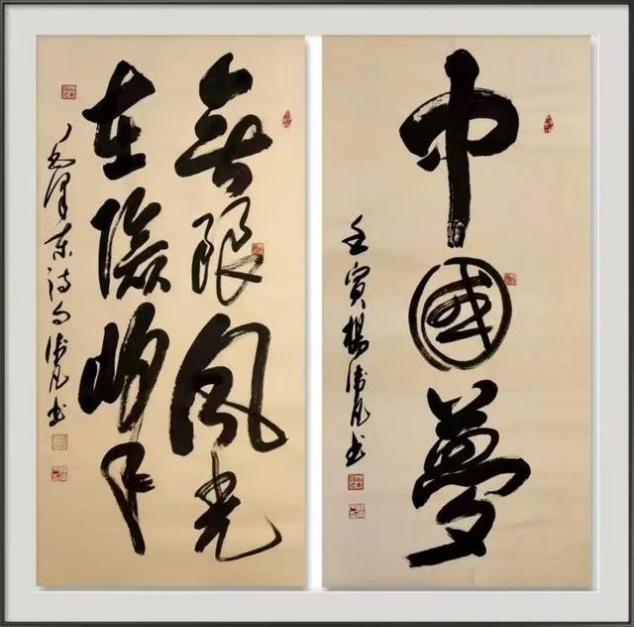 中國夢
壬寅楊凡書
無限風光
在險峰
毛澤東詩句凡書